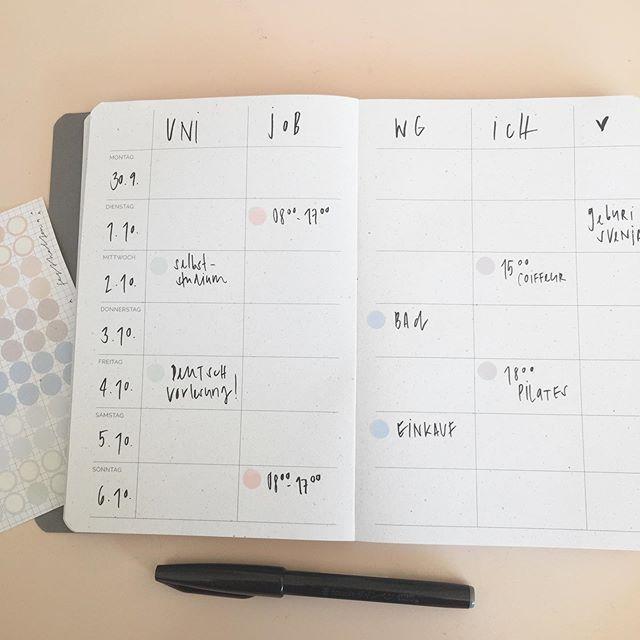 UNI JOB WG ICH ♥
MONTAG
30.9.
DIENSTAG
1.10. 08⁰⁰-17⁰⁰ geburt
svenja
MITTWOCH
2.10. selbst- 15⁰⁰
studium COIFFEUR
DONNERSTAG
3.10. BAD
FREITAG
4.10. DEUTSCH 18⁰⁰
vorlesung! PILATES
SAMSTAG
5.10. EINKAUF
SONNTAG
6.10. 08⁰⁰-17⁰⁰